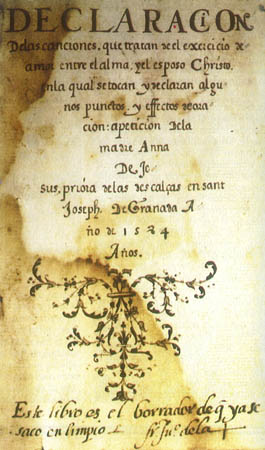 DECLARACION.
Delas canciones, que tratan de el exercicio de
amor entre el alma, y el esposo Christo.
enla qual se tocan y declaran algu
nos punctos y effectos de ora
cion: a peticion dela
madre Anna
De Je
sus, priora de las descalças en sant
Joseph. De Granada A
ño de 1584
Años.
Este libro es el borrador de q̄ ya se
saco en limpio fr. Juº dela +